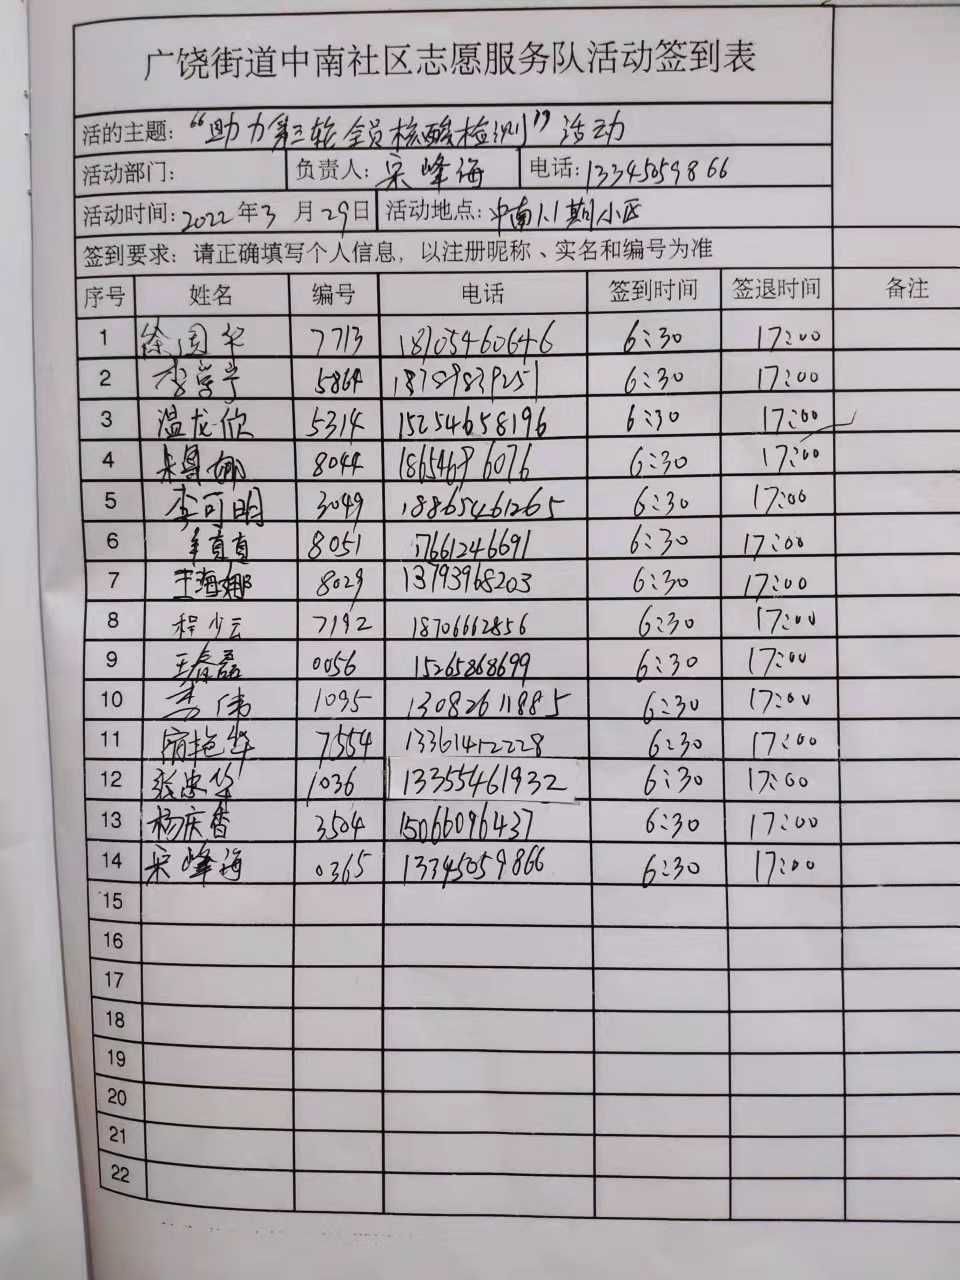 广饶街道中南社区志愿服务队活动签到表
活的主题：“助力第三轮全员核酸检测”活动
活动部门： 负责人：宋峰海 电话：13345059866
活动时间：2022年3月29日 活动地点：中南1.1期小区
签到要求：请正确填写个人信息，以注册昵称、实名和编号为准
序号 姓名 编号 电话 签到时间 签退时间 备注
1 徐国华 7713 18705460646 6:30 17:00
2 李学宁 5864 6:30 17:00
3 温龙欣 5314 15254658196 6:30 17:00
4 8044 6:30 17:00
5 李可明 3049 18865461265 6:30 17:00
6 辛真真 8051 17661246691 6:30 17:00
7 王海娜 8029 13793968203 6:30 17:00
8 程少云 7192 18706662856 6:30 17:00
9 王春磊 0056 15265868699 6:30 17:00
10 李伟 1095 13082611885 6:30 17:00
11 宿艳华 7554 13361412228 6:30 17:00
12 张忠华 1036 13355461932 6:30 17:00
13 杨庆香 3504 15066096437 6:30 17:00
14 宋峰海 0365 13345059866 6:30 17:00
15
16
17
18
19
20
21
22